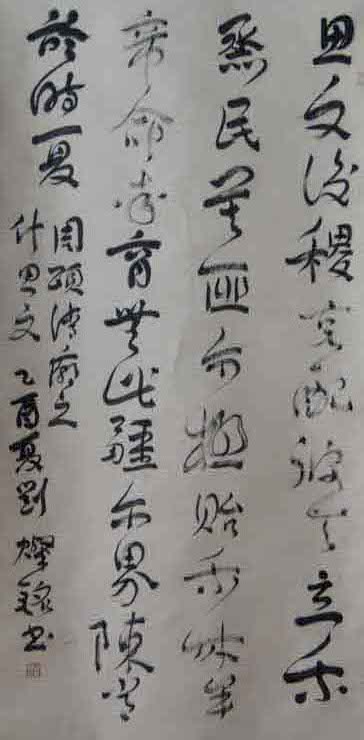 思文後稷克配彼天立我
烝民莫匪尔極貽我來牟
帝命率育無此疆尔界陳常
於時夏
周頌清廟之
什思文 乙酉夏劉燦銘書